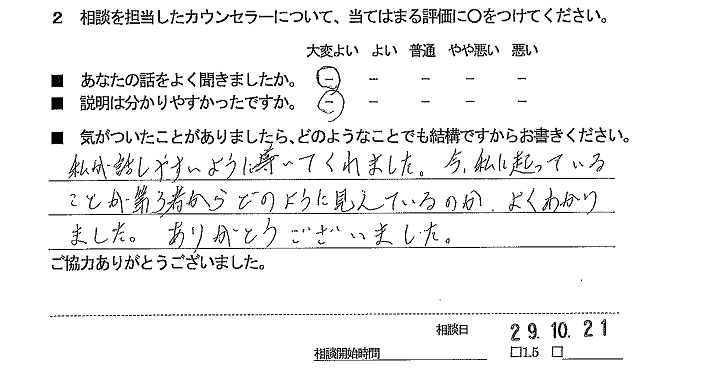 2 相談を担当したカウンセラーについて、当てはまる評価に〇をつけてください。
大変よい よい 普通 やや悪い 悪い
■ あなたの話をよく聞きましたか。 - - - - -
■ 説明は分かりやすかったですか。 - - - - -
■ 気がついたことがありましたら、どのようなことでも結構ですからお書きください。
私が話しやすいように導いてくれました。今、私に起っている
ことが第3者からどのように見えているのか、よくわかり
ました。ありがとうございいました。
ご協力ありがとうございました。
相談日 29.10.21
相談開始時間 □1.5 □